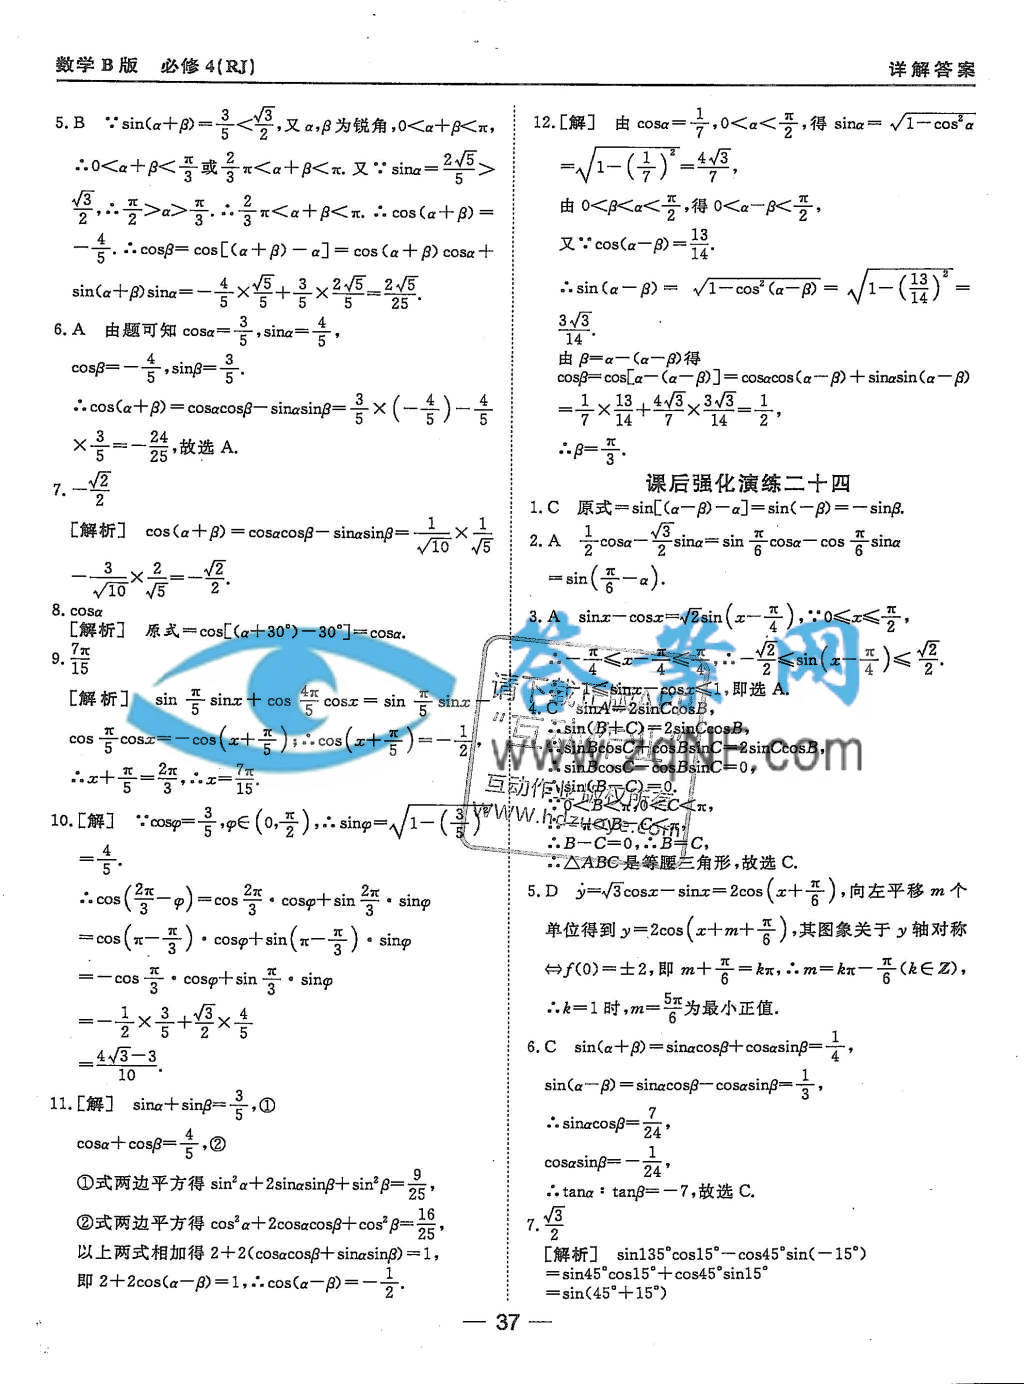 数学B版 必修4(RJ)
详解答案
5.B ∵sin(α+β)=3/5<√3/2,又α,β为锐角,0<α+β<π,
∴0<α+β<π/3或2/3π<α+β<π.又∵sinα=2√5/5>
√3/2,∴π/2>α>π/3.∴2/3π<α+β<π.∴cos(α+β)=
-4/5.∴cosβ=cos[(α+β)-α]=cos(α+β)cosα+
sin(α+β)sinα=-4/5×√5/5+3/5×2√5/5=2√5/25.
6.A 由题可知cosα=3/5,sinα=4/5,
cosβ=-4/5,sinβ=3/5.
∴cos(α+β)=cosαcosβ-sinαsinβ=3/5×(-4/5)-4/5
×3/5=-24/25,故选A.
7.-√2/2
[解析] cos(α+β)=cosαcosβ-sinαsinβ=1/√10×1/√5
-3/√10×2/√5=-√2/2.
8.cosα
[解析] 原式=cos[(α+30°)-30°]=cosα.
9.7π/15
[解析] sin π/5 sinx+cos 4π/5 cosx=sin π/5 sinx-
cos π/5 cosx=-cos(x+π/5),∴cos(x+π/5)=-1/2,
∴x+π/5=2π/3,∴x=7π/15.
10.[解] ∵cosφ=3/5,φ∈(0,π/2),∴sinφ=√(1-(3/5)²)
=4/5.
∴cos(2π/3-φ)=cos 2π/3·cosφ+sin 2π/3·sinφ
=cos(π-π/3)·cosφ+sin(π-π/3)·sinφ
=-cos π/3·cosφ+sin π/3·sinφ
=-1/2×3/5+√3/2×4/5
=(4√3-3)/10.
11.[解] sinα+sinβ=3/5,①
cosα+cosβ=4/5,②
①式两边平方得sin²α+2sinαsinβ+sin²β=9/25,
②式两边平方得cos²α+2cosαcosβ+cos²β=16/25,
以上两式相加得2+2(cosαcosβ+sinαsinβ)=1,
即2+2cos(α-β)=1,∴cos(α-β)=-1/2.
12.[解] 由cosα=1/7,0<α<π/2,得sinα=√(1-cos²α)
=√(1-(1/7)²)=4√3/7,
由0<β<α<π/2,得0<α-β<π/2,
又∵cos(α-β)=13/14.
∴sin(α-β)=√(1-cos²(α-β))=√(1-(13/14)²)=
3√3/14.
由β=α-(α-β)得
cosβ=cos[α-(α-β)]=cosαcos(α-β)+sinαsin(α-β)
=1/7×13/14+4√3/7×3√3/14=1/2,
∴β=π/3.
课后强化演练二十四
1.C 原式=sin[(α-β)-α]=sin(-β)=-sinβ.
2.A 1/2cosα-√3/2sinα=sin π/6 cosα-cos π/6 sinα
=sin(π/6-α).
3.A sinx-cosx=√2sin(x-π/4),∵0≤x≤π/2,
∴-π/4≤x-π/4≤π/4,∴-√2/2≤sin(x-π/4)≤√2/2.
∴-1≤sinx-cosx≤1,即选A.
4.C sinA=2sinCcosB,
∴sin(B+C)=2sinCcosB,
∴sinBcosC+cosBsinC=2sinCcosB,
∴sinBcosC-cosBsinC=0,
∴sin(B-C)=0.
∵0<B<π,0<C<π,
∴-π<B-C<π,
∴B-C=0,∴B=C,
∴△ABC是等腰三角形,故选C.
5.D y=√3cosx-sinx=2cos(x+π/6),向左平移m个
单位得到y=2cos(x+m+π/6),其图象关于y轴对称
⇔f(0)=±2,即m+π/6=kπ,∴m=kπ-π/6(k∈Z),
∴k=1时,m=5π/6为最小正值.
6.C sin(α+β)=sinαcosβ+cosαsinβ=1/4,
sin(α-β)=sinαcosβ-cosαsinβ=1/3,
∴sinαcosβ=7/24,
cosαsinβ=-1/24,
∴tanα∶tanβ=-7,故选C.
7.√3/2
[解析] sin135°cos15°-cos45°sin(-15°)
=sin45°cos15°+cos45°sin15°
=sin(45°+15°)
答案网
www.zqnf.com
— 37 —